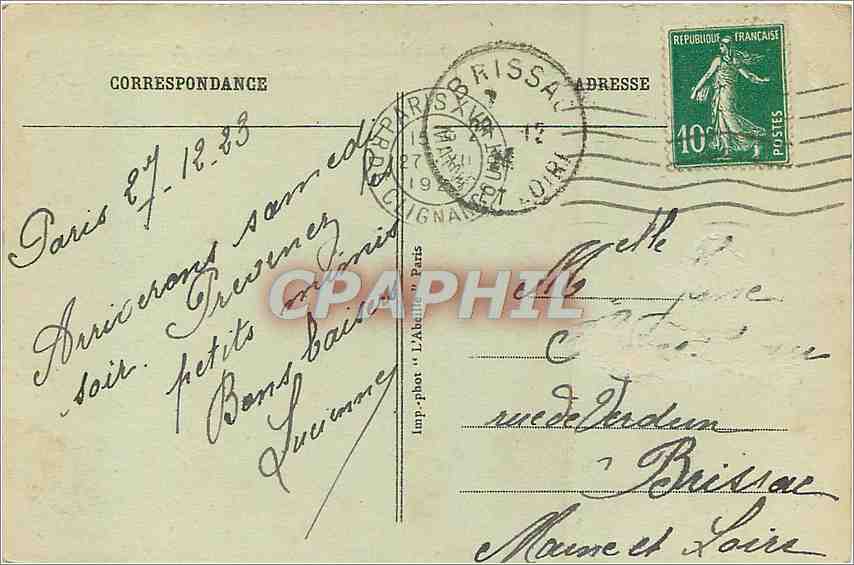 CORRESPONDANCE
ADRESSE
RÉPUBLIQUE FRANÇAISE
10c
POSTES
BRISSAC
LOIRE
PARIS XVIII
27
19
Paris 27-12-23
Arriverons samedi
soir. Prevenez les
petits mimis
Bons baisers
Lucienne
Imp.-phot "L'Abeille" Paris
CPAPHIL
Melle
rue de Verdun
Brissac
Maine et Loire